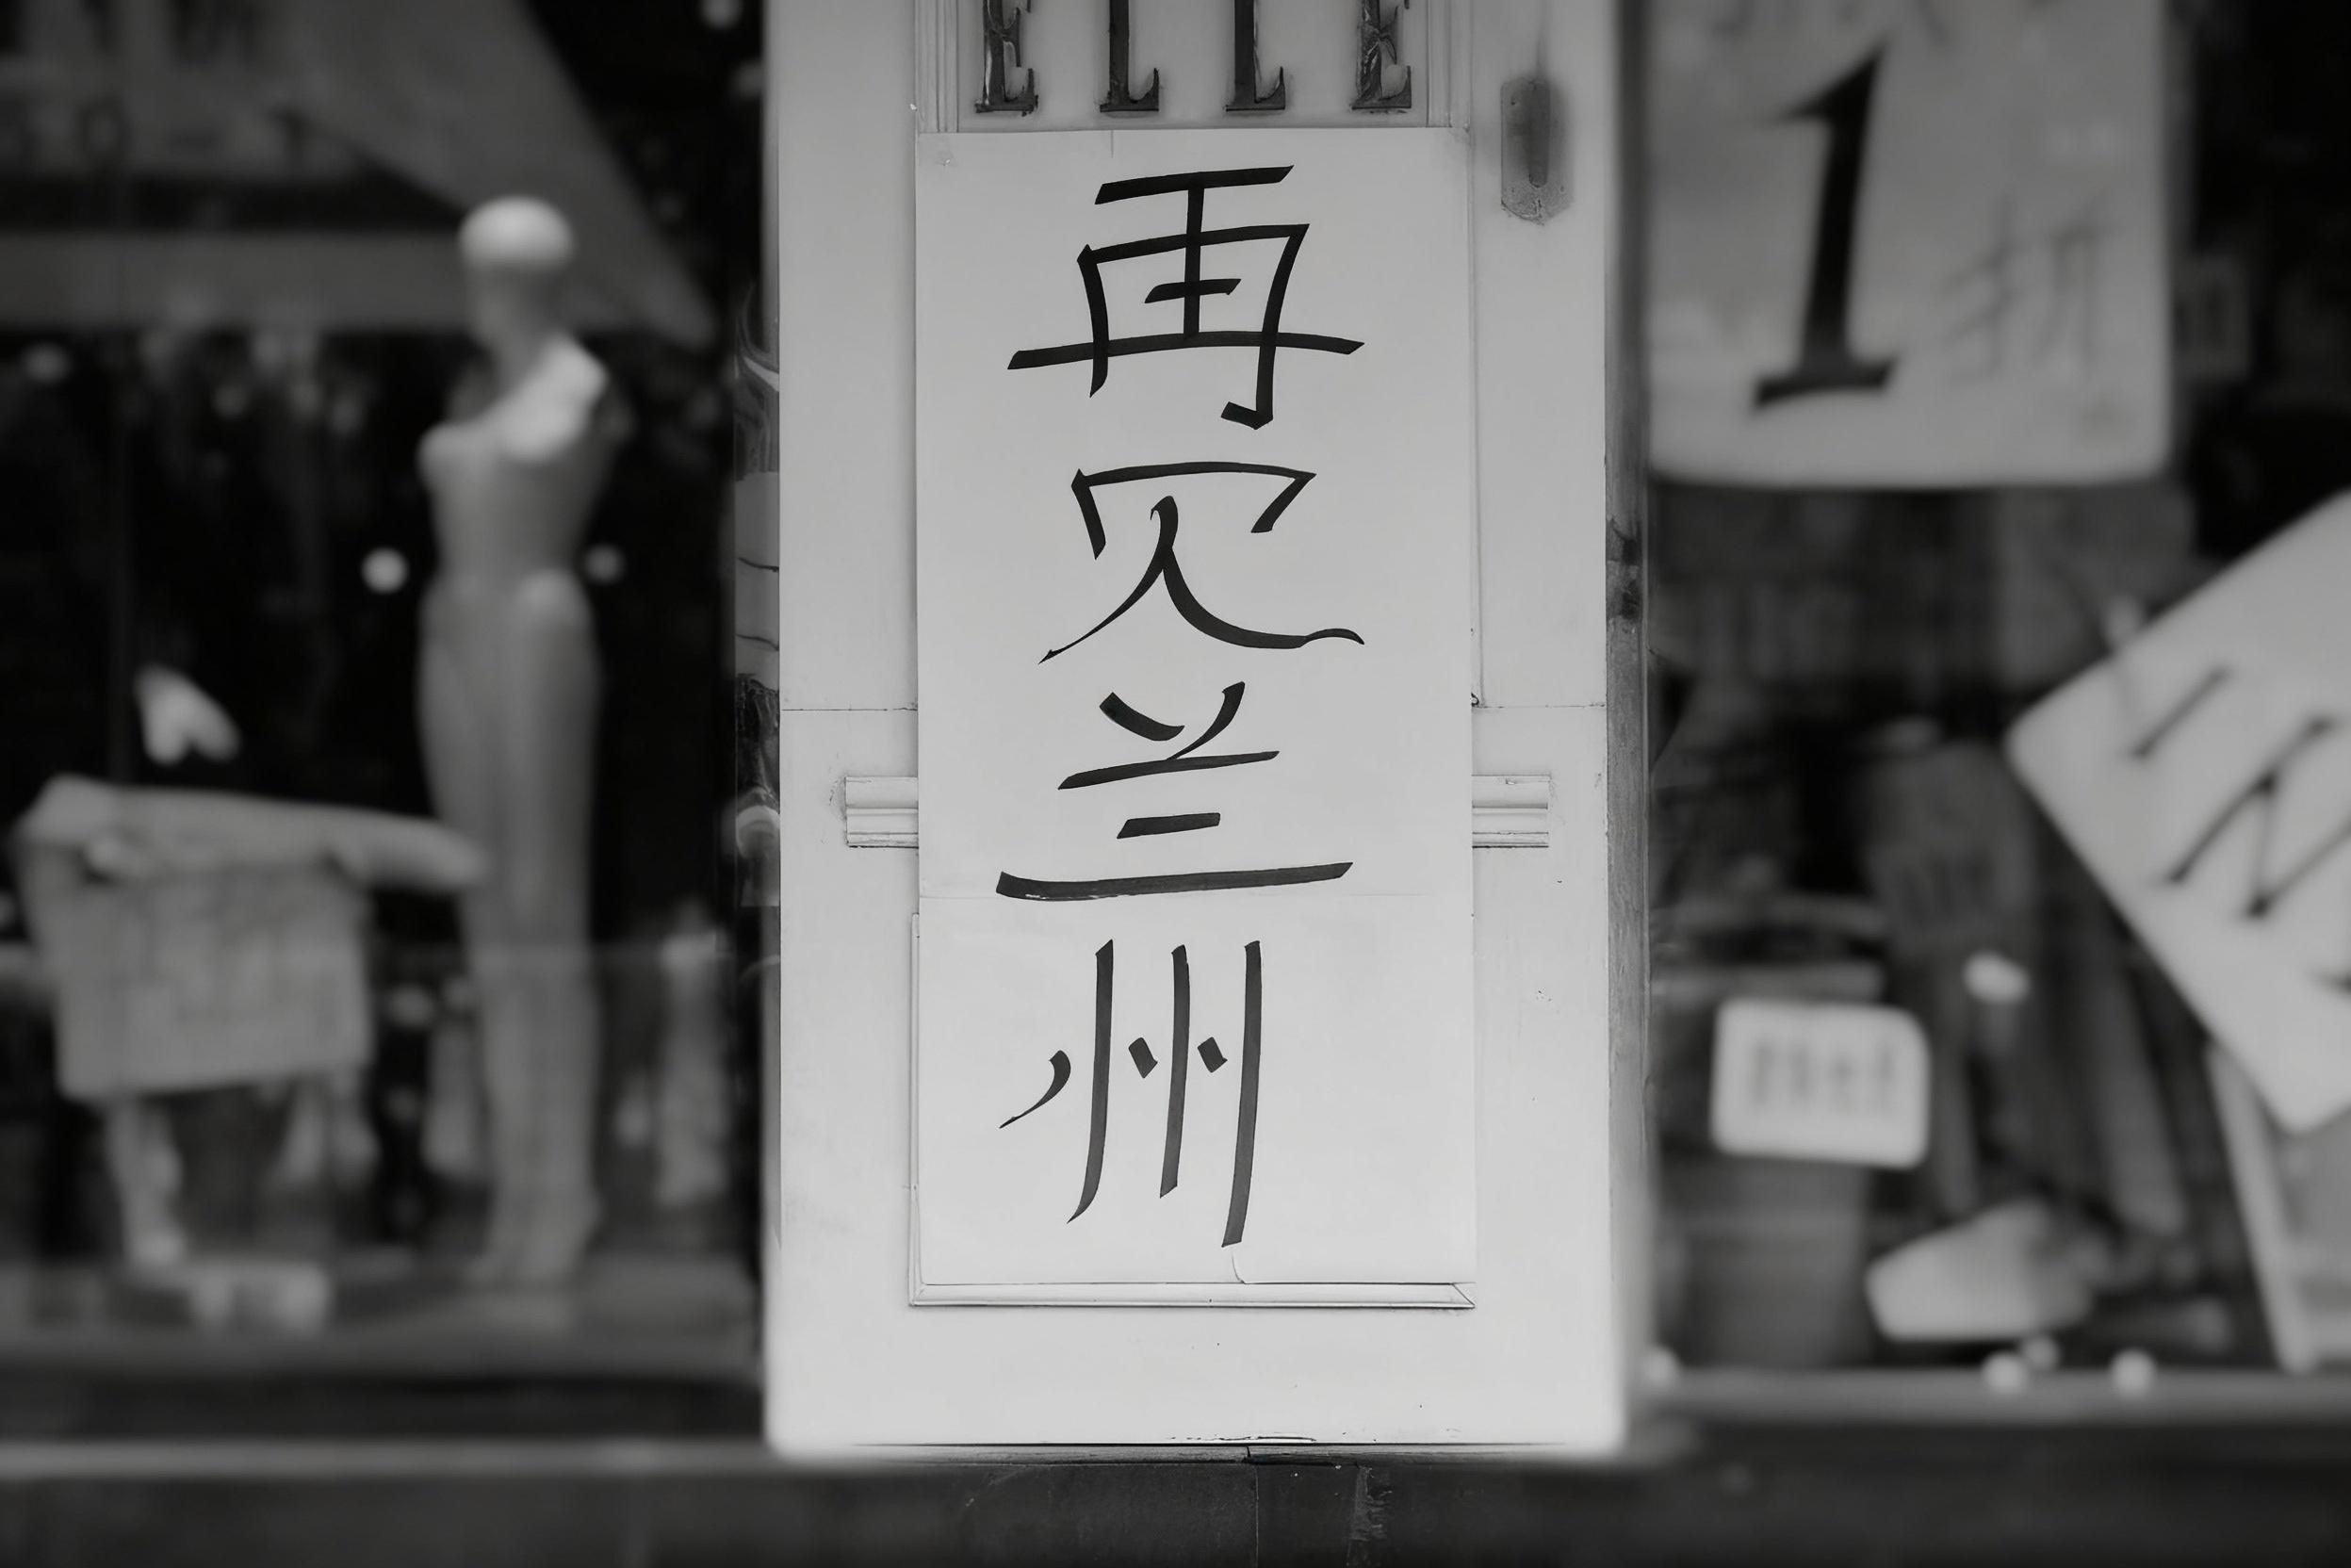 ELLE
再见兰州
1折